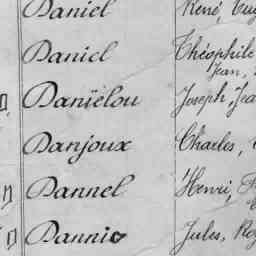 Daniel René, Eug
Daniel Théophile
Jean,
Daniëlou Joseph, Jea
Danjoux Charles,
Dannel Henri,
Dannic Jules, Ro